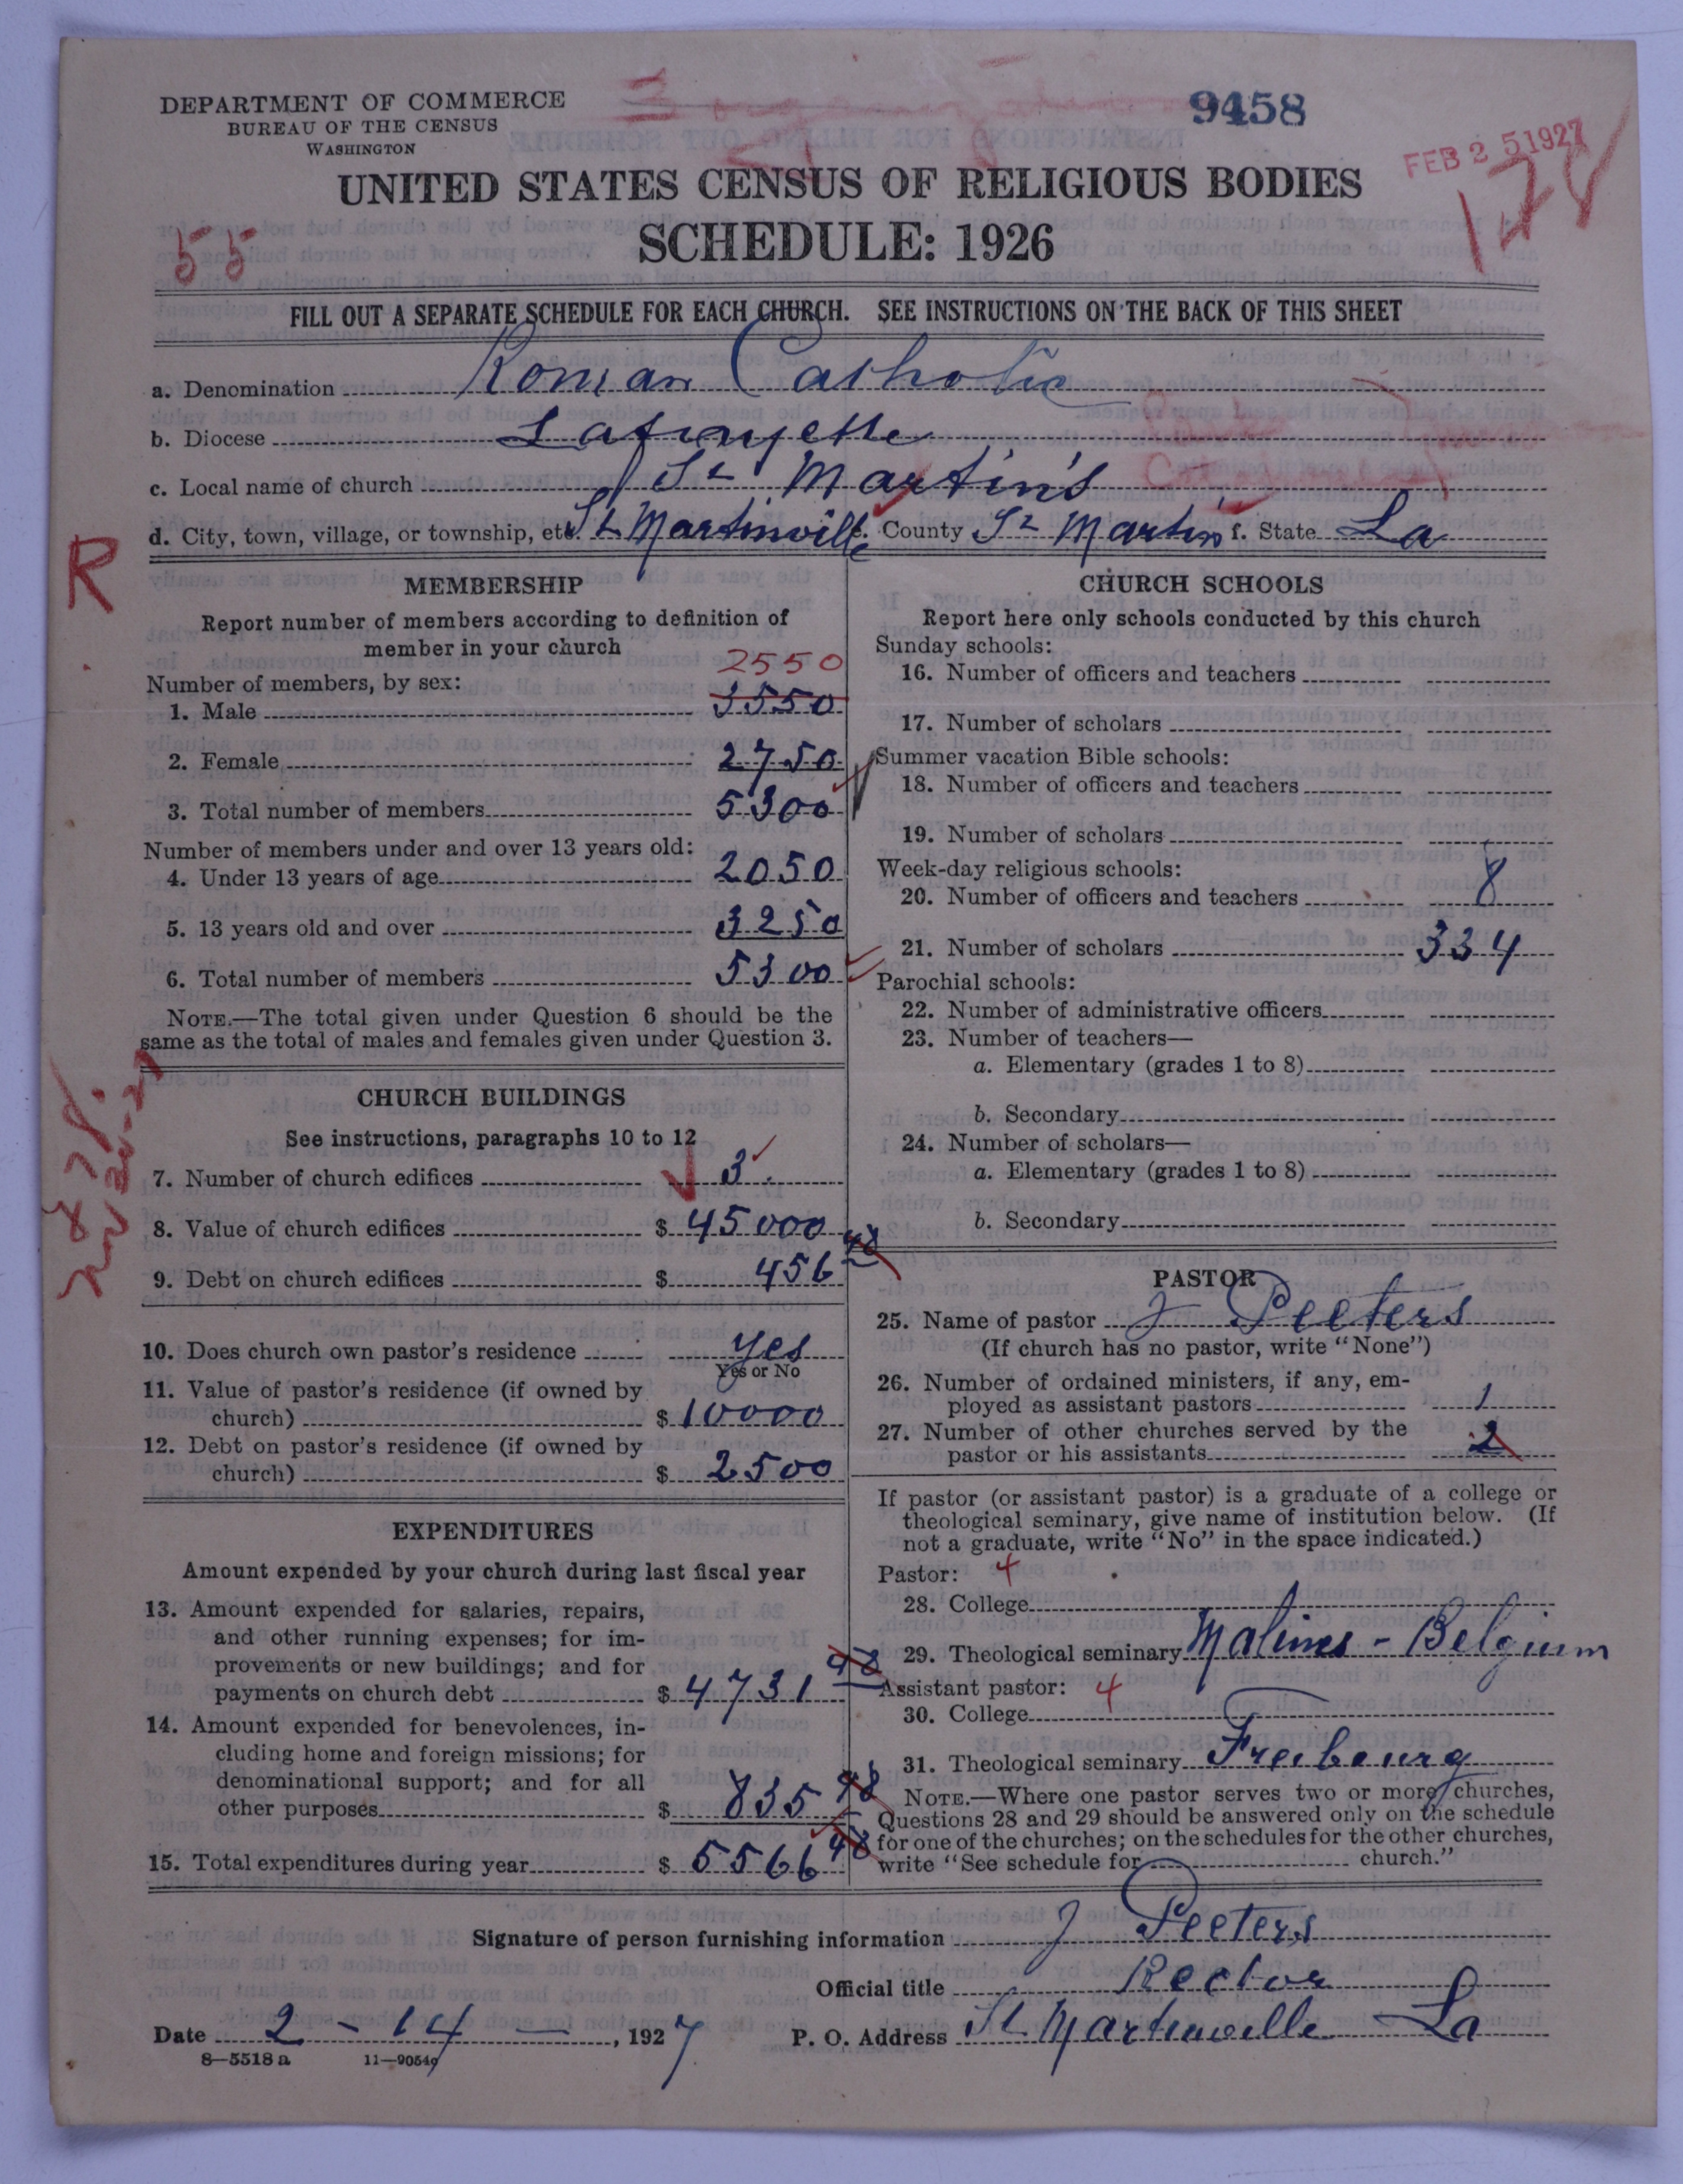 DEPARTMENT OF COMMERCE
BUREAU OF THE CENSUS
WASHINGTON
9458
FEB 25 1927
128
UNITED STATES CENSUS OF RELIGIOUS BODIES
SCHEDULE: 1926
55
FILL OUT A SEPARATE SCHEDULE FOR EACH CHURCH. SEE INSTRUCTIONS ON THE BACK OF THIS SHEET
a. Denomination Roman Catholic
b. Diocese Lafayette
c. Local name of church St Martin's
d. City, town, village, or township, etc. St Martinville e. County St Martin f. State La
R
MEMBERSHIP
Report number of members according to definition of
member in your church
Number of members, by sex:
2550
1. Male 3550
2. Female 2750
3. Total number of members 5300
Number of members under and over 13 years old:
4. Under 13 years of age 2050
5. 13 years old and over 3250
6. Total number of members 5300
NOTE.—The total given under Question 6 should be the
same as the total of males and females given under Question 3.
CHURCH BUILDINGS
See instructions, paragraphs 10 to 12
7. Number of church edifices 3
8. Value of church edifices $ 45000
9. Debt on church edifices $ 456 48
10. Does church own pastor's residence yes
Yes or No
11. Value of pastor's residence (if owned by
church) $ 10000
12. Debt on pastor's residence (if owned by
church) $ 2500
EXPENDITURES
Amount expended by your church during last fiscal year
13. Amount expended for salaries, repairs,
and other running expenses; for im-
provements or new buildings; and for
payments on church debt $ 4731 48
14. Amount expended for benevolences, in-
cluding home and foreign missions; for
denominational support; and for all
other purposes $ 835 98
15. Total expenditures during year $ 5566 48
CHURCH SCHOOLS
Report here only schools conducted by this church
Sunday schools:
16. Number of officers and teachers
17. Number of scholars
Summer vacation Bible schools:
18. Number of officers and teachers
19. Number of scholars
Week-day religious schools:
20. Number of officers and teachers 8
21. Number of scholars 334
Parochial schools:
22. Number of administrative officers
23. Number of teachers—
a. Elementary (grades 1 to 8)
b. Secondary
24. Number of scholars—
a. Elementary (grades 1 to 8)
b. Secondary
PASTOR
25. Name of pastor J Peeters
(If church has no pastor, write "None")
26. Number of ordained ministers, if any, em-
ployed as assistant pastors 1
27. Number of other churches served by the
pastor or his assistants 2
If pastor (or assistant pastor) is a graduate of a college or
theological seminary, give name of institution below. (If
not a graduate, write "No" in the space indicated.)
Pastor: 4
28. College
29. Theological seminary Malines - Belgium
Assistant pastor: 4
30. College
31. Theological seminary Freibourg
NOTE.—Where one pastor serves two or more churches,
Questions 28 and 29 should be answered only on the schedule
for one of the churches; on the schedules for the other churches,
write "See schedule for church."
Signature of person furnishing information J Peeters
Official title Rector
Date 2 - 14 - , 1927 P. O. Address St Martinville La
8—5518 a 11—9054